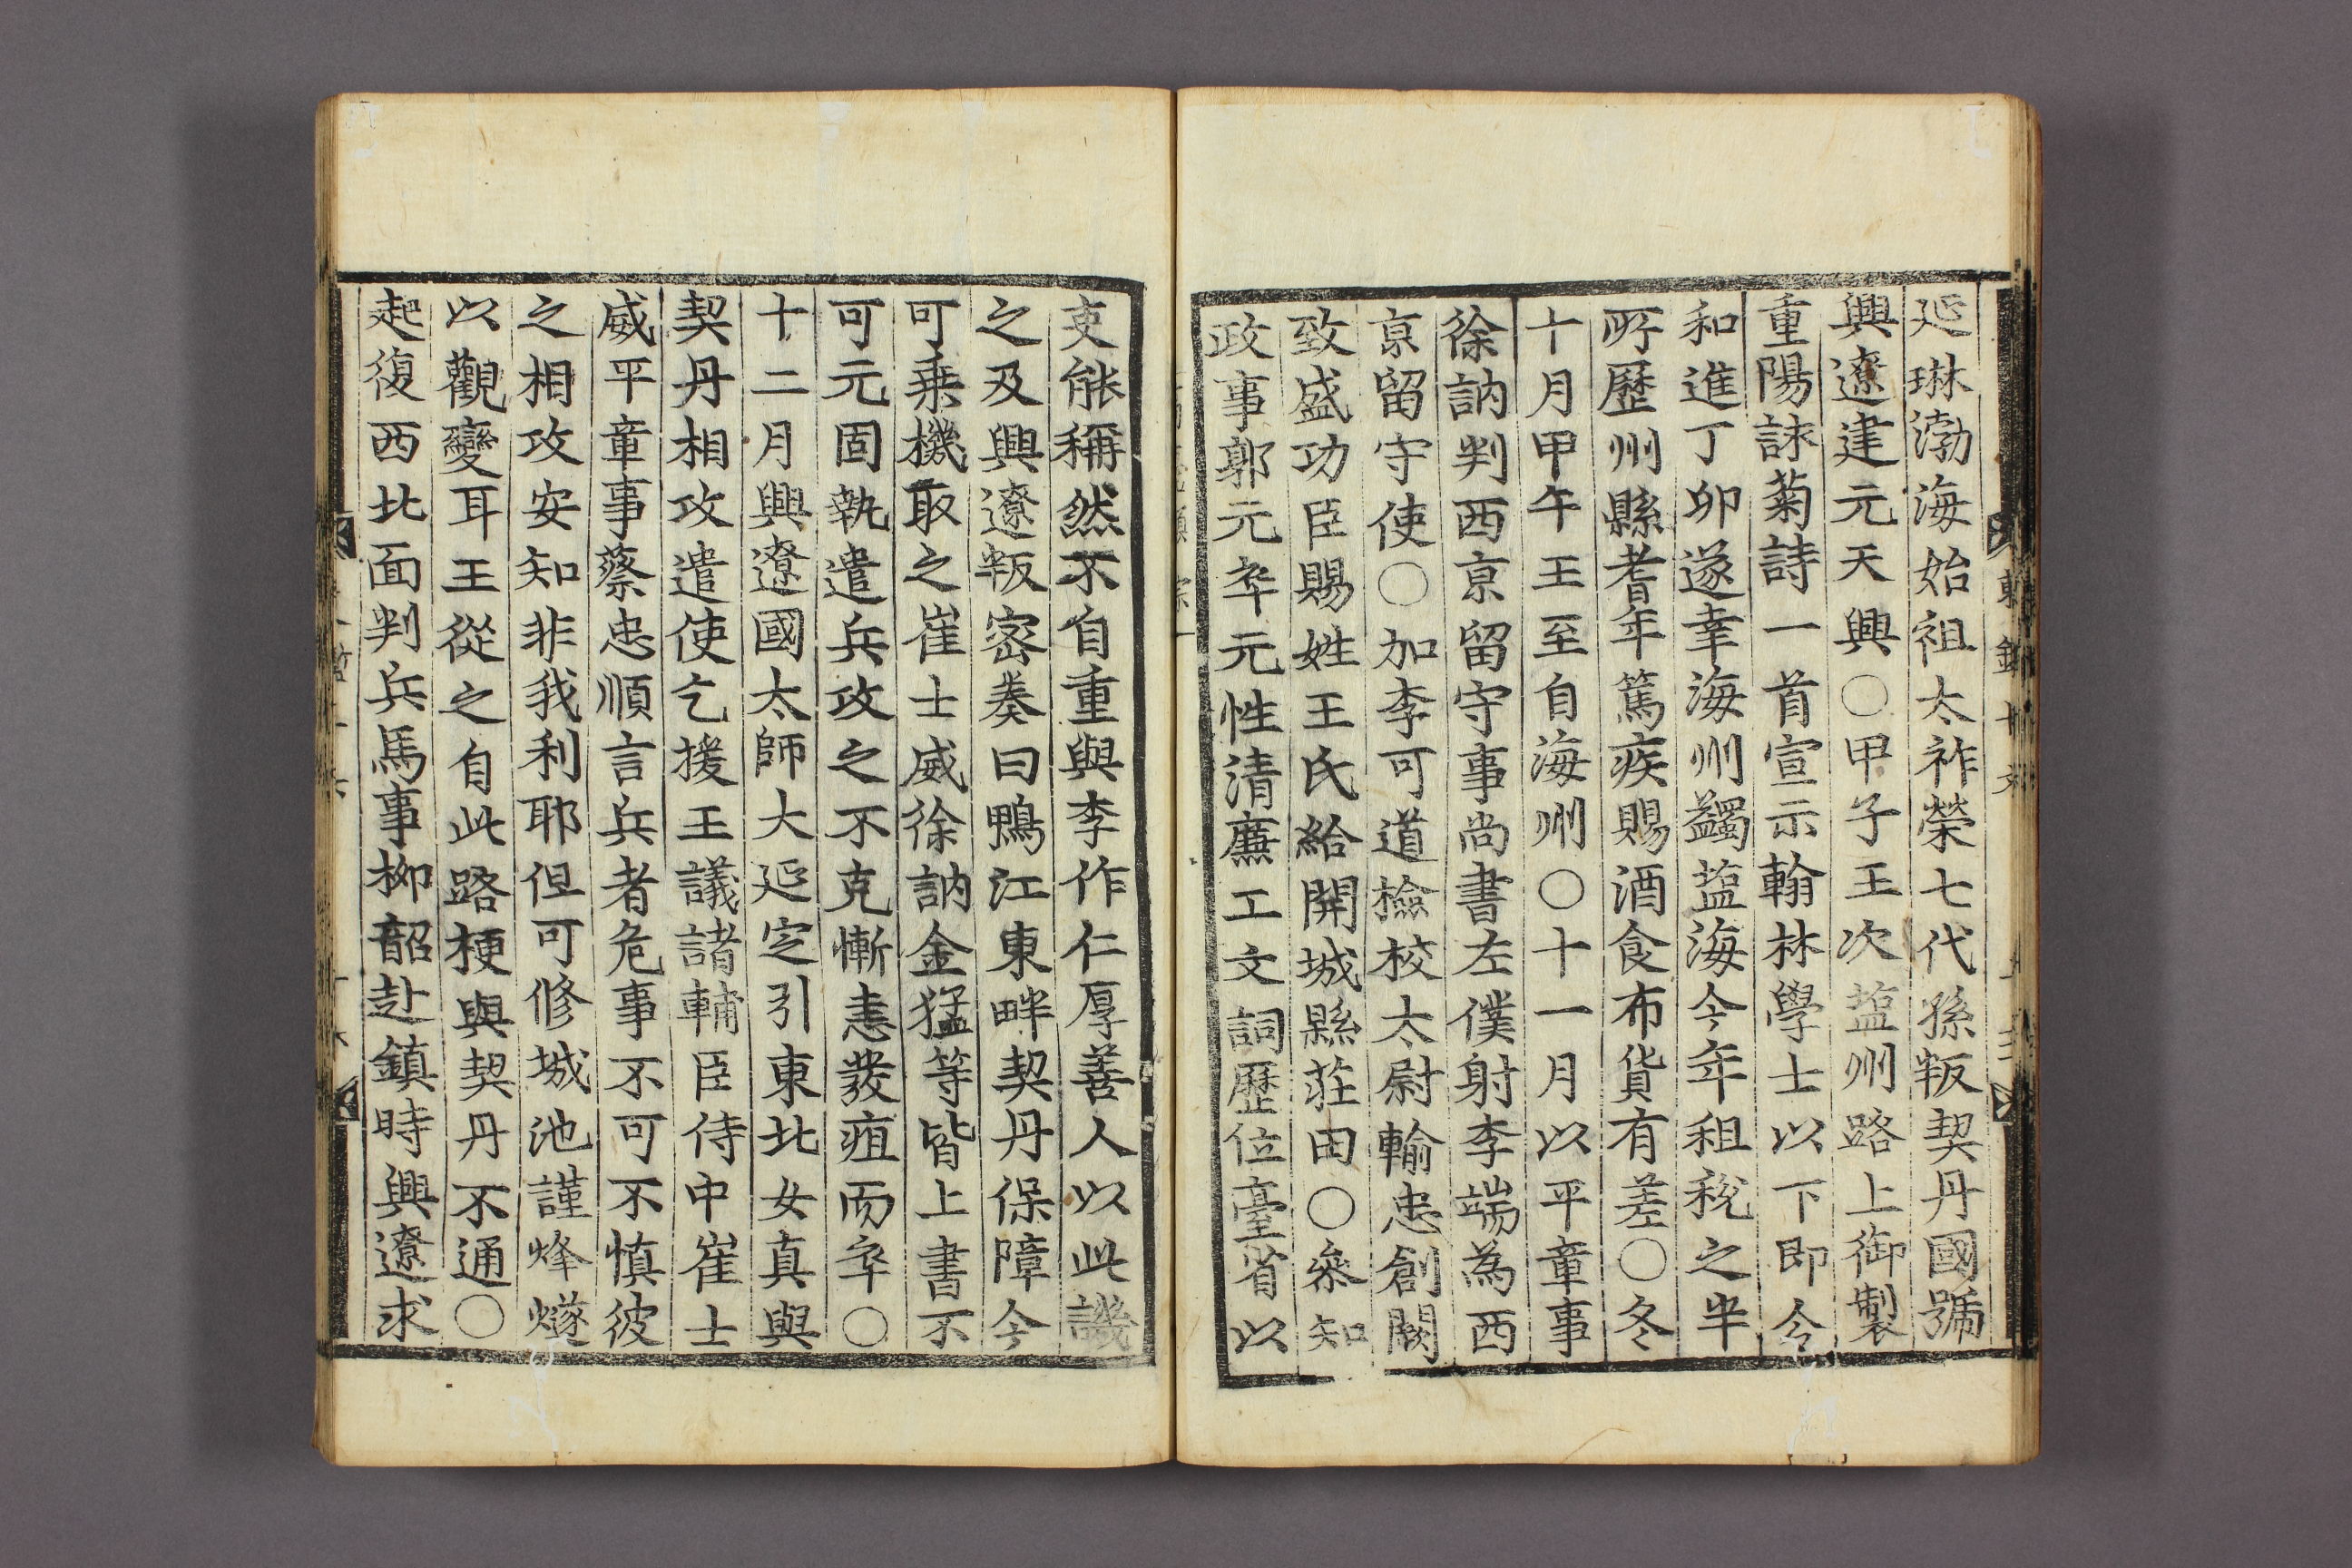 延琳渤海始祖太祚榮七代孫叛契丹國號
興遼建元天興〇甲子王次塩州路上御製
重陽詠菊詩一首宣示翰林學士以下即令
和進丁卯遂幸海州蠲塩海今年租稅之半
所歷州縣耆年篤疾賜酒食布貨有差〇冬
十月甲午王至自海州〇十一月以平章事
徐訥判西京留守事尚書左僕射李端為西
京留守使〇加李可道檢校太尉輸忠創闕
致盛功臣賜姓王氏給開城縣莊田〇叅知
政事郭元卒元性清廉工文詞歷位臺省以
吏能稱然不自重與李作仁厚善人以此譏
之及興遼叛密奏曰鴨江東畔契丹保障今
可乗機取之崔士威徐訥金猛等皆上書不
可元固執遣兵攻之不克慚恚發疽而卒〇
十二月興遼國太師大延定引東北女真與
契丹相攻遣使乞援王議諸輔臣侍中崔士
威平章事蔡忠順言兵者危事不可不慎彼
之相攻安知非我利耶但可修城池謹烽燧
以觀變耳王從之自此路梗與契丹不通〇
起復西北面判兵馬事柳韶赴鎮時興遼求